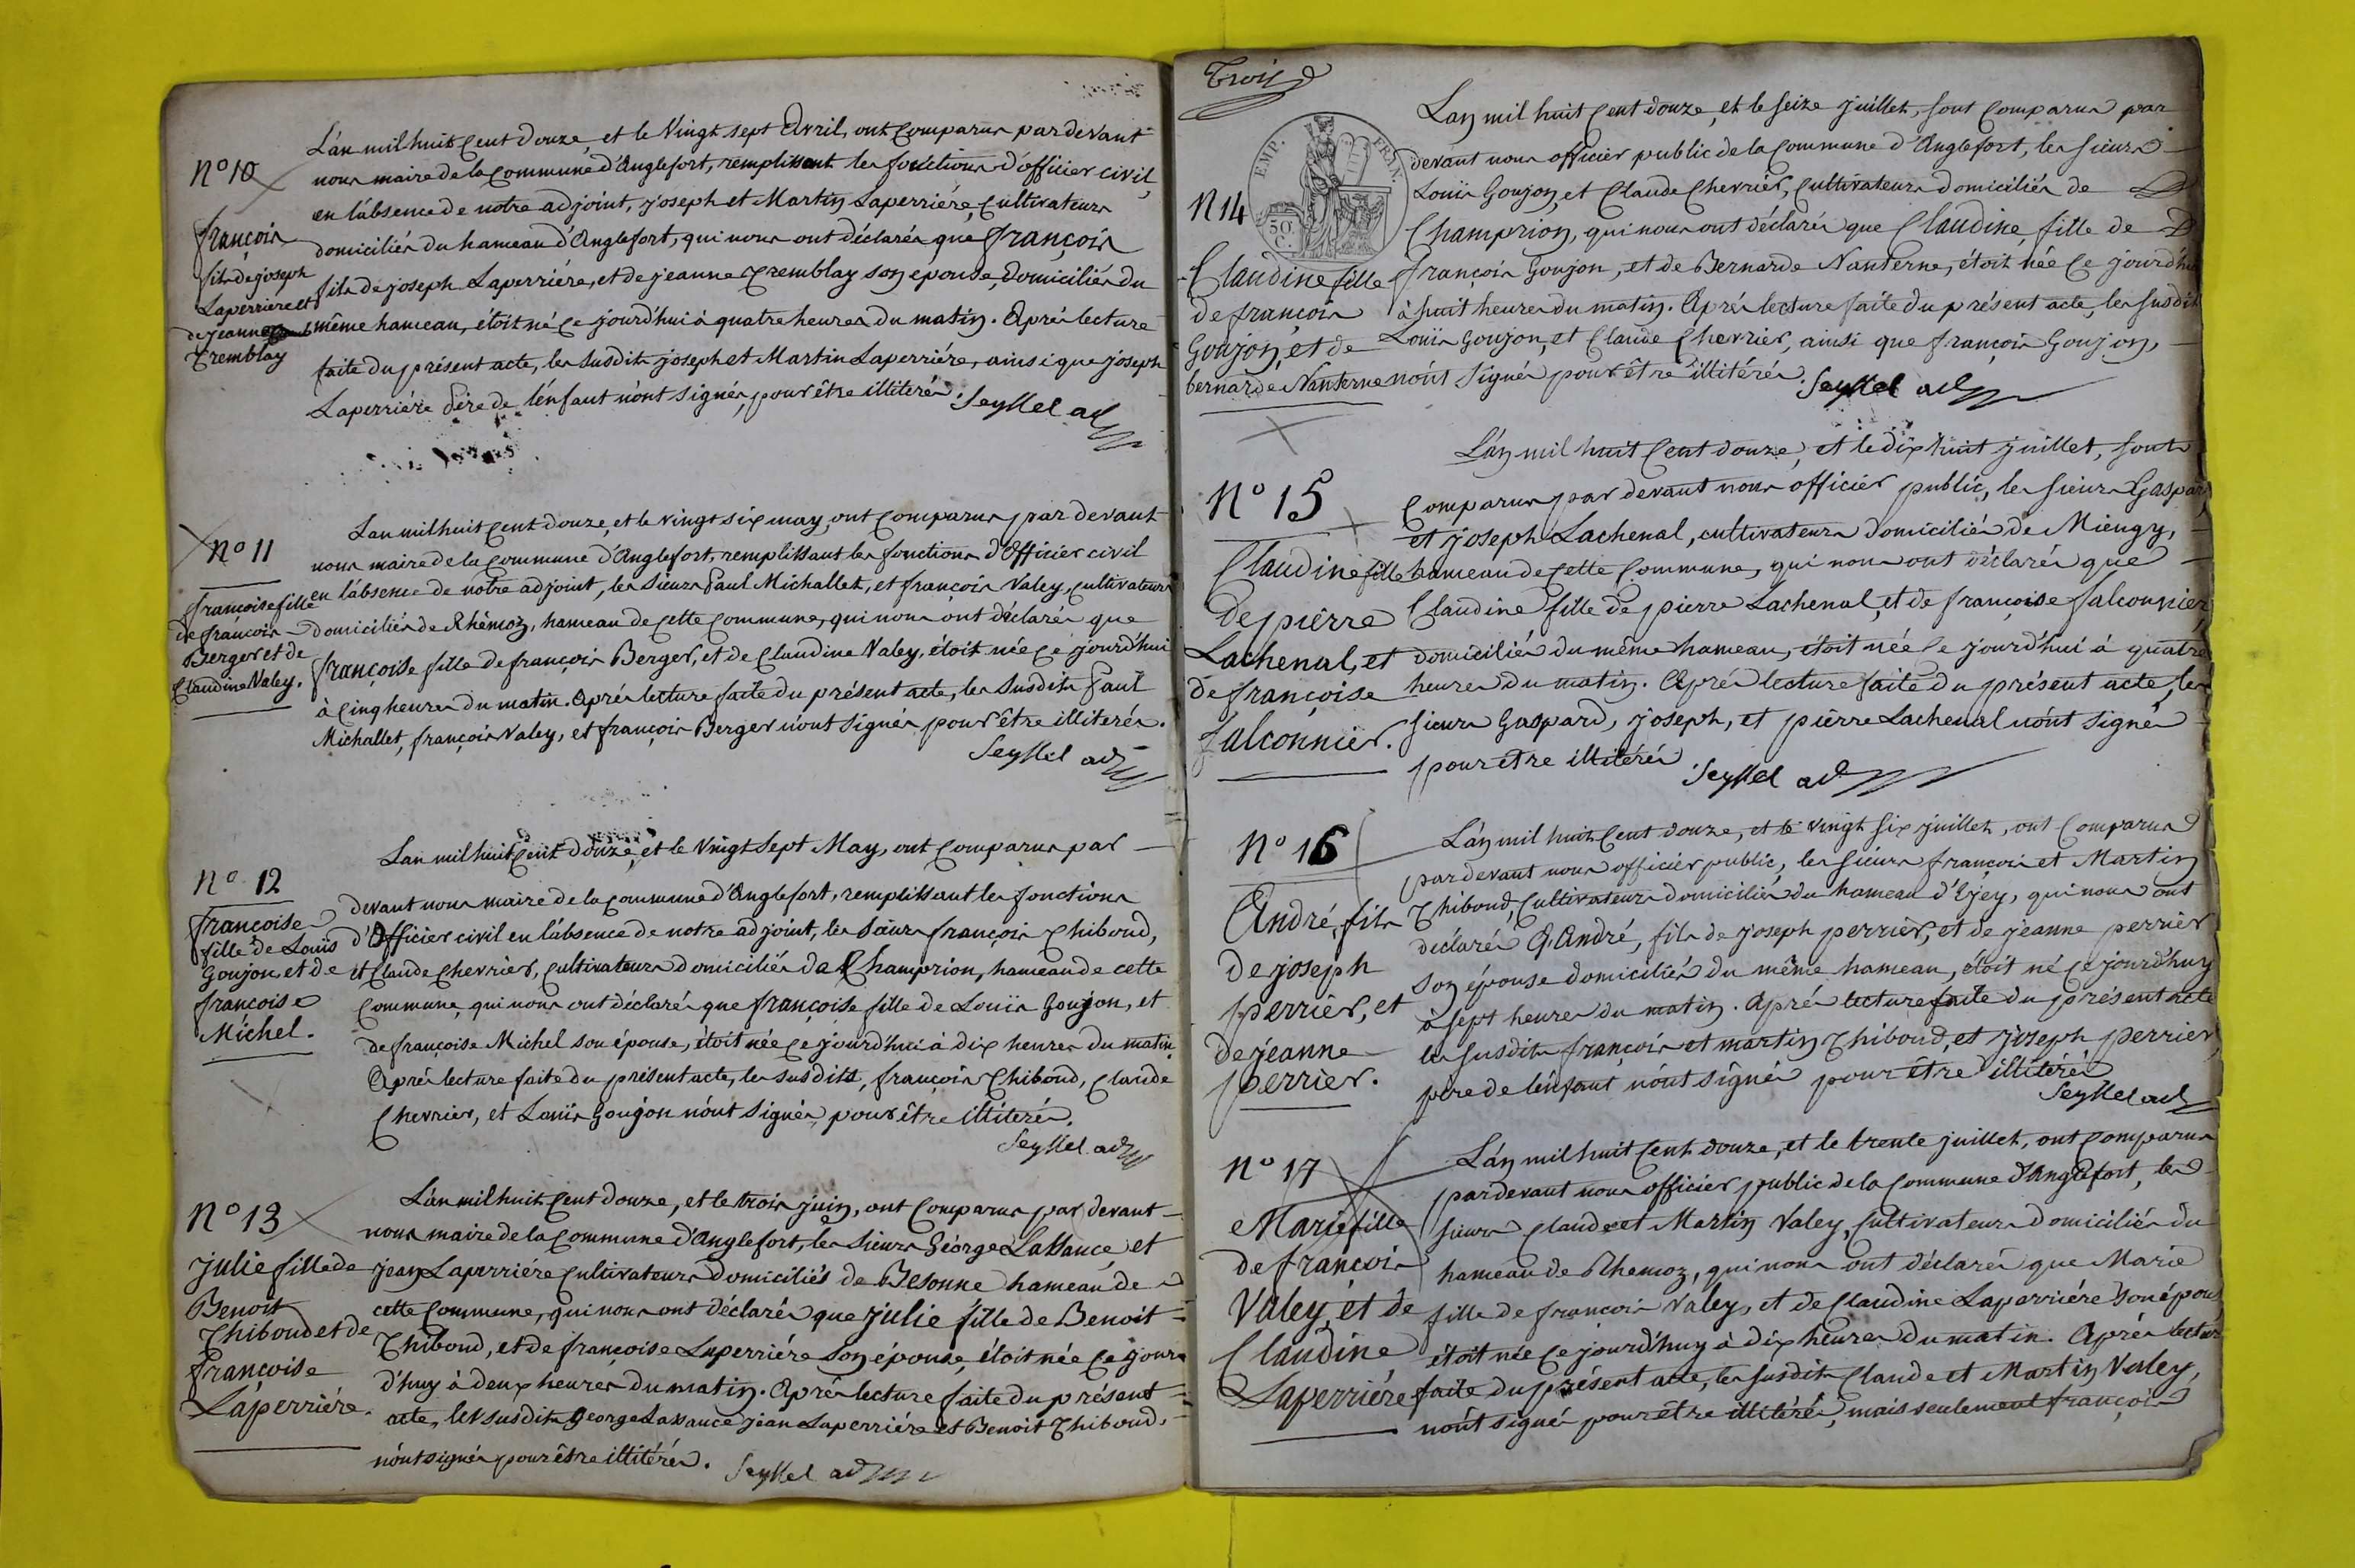 N° 10
françois
fils de joseph
Laperriere et
de jeanne
Tremblay
L'an mil huit Cent douze, et le Vingt sept Avril, ont Comparus par devant
nous maire de la Commune d'Anglefort, remplissant les fonctions d'officier civil,
en l'absence de notre adjoint, joseph et Martin Laperriére, Cultivateurs
domiciliés du hameau d'Anglefort, qui nous ont déclarés que françois
fils de joseph Laperriére, et de jeanne Tremblay son epouse, domiciliés du
même hameau, étoit né Ce jourd'hui à quatre heures du matin. Après lecture
faite du présent acte, les susdits joseph et Martin Laperriére, ainsi que joseph
Laperriére Père de l'enfant n'ont signés, pour être illiterés. Seyssel adj
N° 11
françoise fille
de françois
Berger et de
Claudine Valey.
L'an mil huit Cent douze, et le vingt six may, ont Comparus par devant
nous maire de la Commune d'Anglefort, remplissant les fonctions d'Officier civil
en l'absence de notre adjoint, les Sieurs Paul Michallet, et françois Valey, Cultivateurs
domiciliés de Rhémoz, hameau de Cette Commune, qui nous ont déclarés que
françoise fille de françois Berger, et de Claudine Valey, étoit née Ce jourd'hui
à Cinq heures du matin. Après lecture faite du présent acte, les susdits Paul
Michallet, françois Valey, et françois Berger n'ont signés pour être illiterés.
Seyssel adj
N° 12
françoise
fille de Louïs
Goujon et de
françoise
Michel.
L'an mil huit Cent douze, et le Vingt sept May, ont Comparus par
devant nous maire de la Commune d'Anglefort, remplissant les fonctions
d'Officier civil en l'absence de notre adjoint, les Sieurs françois Thiboud,
et Claude Chevrier, Cultivateurs domiciliés de Champrion, hameau de cette
Commune, qui nous ont déclarés que françoise fille de Louïs Goujon, et
de françoise Michel son épouse, étoit née Ce jourd'hui à dix heures du matin.
Après lecture faite du présent acte, les susdits, françois Thiboud, Claude
Chevrier, et Louïs Goujon n'ont signés pour être illiterés.
Seyssel adj
N° 13
julie fille de
Benoit
Thiboud et de
françoise
Laperriére.
L'an mil huit Cent douze, et le trois juin, ont Comparus par devant
nous maire de la Commune d'Anglefort, les Sieurs George Lassance, et
jean Laperriére Cultivateurs domiciliés de Besonne hameau de
cette Commune, qui nous ont déclarés que julie fille de Benoit
Thiboud, et de françoise Laperriére son épouse, étoit née Ce jour
d'huy à deux heures du matin. Après lecture faite du présent
acte, les susdits George Lassance jean Laperriére et Benoit Thiboud,
n'ont signés pour être illitérés. Seyssel adj
Trois
EMP. FRAN.
50 C.
N 14
Claudine fille
de françois
Goujon, et de
bernarde Nanterne
L'an mil huit Cent douze, et le seize juillet, sont Comparus par
devant nous officier public de la Commune d'Anglefort, les sieurs
Louïs Goujon, et Claude Chevrier, Cultivateurs domiciliés de
Champrion, qui nous ont déclarés que Claudine, fille de
françois Goujon, et de Bernarde Nanterne, étoit née Ce jourd'hui
à huit heures du matin. Après lecture faite du présent acte, les susdits
Louïs Goujon, et Claude Chevrier, ainsi que françois Goujon,
n'ont signés pour être illitérés. Seyssel adj
N° 15
Claudine fille
de pierre
Lachenal, et
de françoise
falconnier.
L'an mil huit Cent douze, et le dix huit juillet, sont
Comparus par devant nous officier public, les sieurs Gaspard,
et joseph Lachenal, cultivateurs domiciliés de Miengy,
hameau de Cette Commune, qui nous ont déclarés que
Claudine fille de pierre Lachenal, et de françoise falconnier,
domiciliés du même hameau, étoit née Ce jourd'hui à quatre
heures du matin. Après lecture faite du présent acte, les
sieurs Gaspard, joseph, et pierre Lachenal n'ont signé
pour etre illitérés. Seyssel adj
N° 16
André, fils
de joseph
perrier, et
de jeanne
perrier.
L'an mil huit Cent douze, et le vingt six juillet, ont Comparus
par devant nous officier public, les sieurs françois et Martin
Thiboud, Cultivateurs domiciliés du hameau d'Ejey, qui nous ont
déclarés Q. André, fils de joseph perrier, et de jeanne perrier
son épouse domiciliés du même hameau, étoit né Ce jourd'huy
à sept heures du matin. Après lecture faite du présent acte
les susdits françois et martin Thiboud, et joseph perrier,
pere de l'enfant n'ont signés pour être illitérés
Seyssel adj
N° 17
Marie fille
de françois
Valey, et de
Claudine
Laperriére
L'an mil huit Cent douze, et le trente juillet, ont Comparus
par devant nous officier public de la Commune d'Anglefort, les
sieurs Claude et Martin Valey, Cultivateurs domiciliés du
hameau de Rhemoz, qui nous ont déclarés que Marie
fille de françois Valey, et de Claudine Laperriére son épou
étoit née Ce jourd'huy à dix heures du matin. Après lectur
faite du présent acte, les susdits Claude et Martin Valey,
n'ont signés pour être illitérés, mais seulement françois